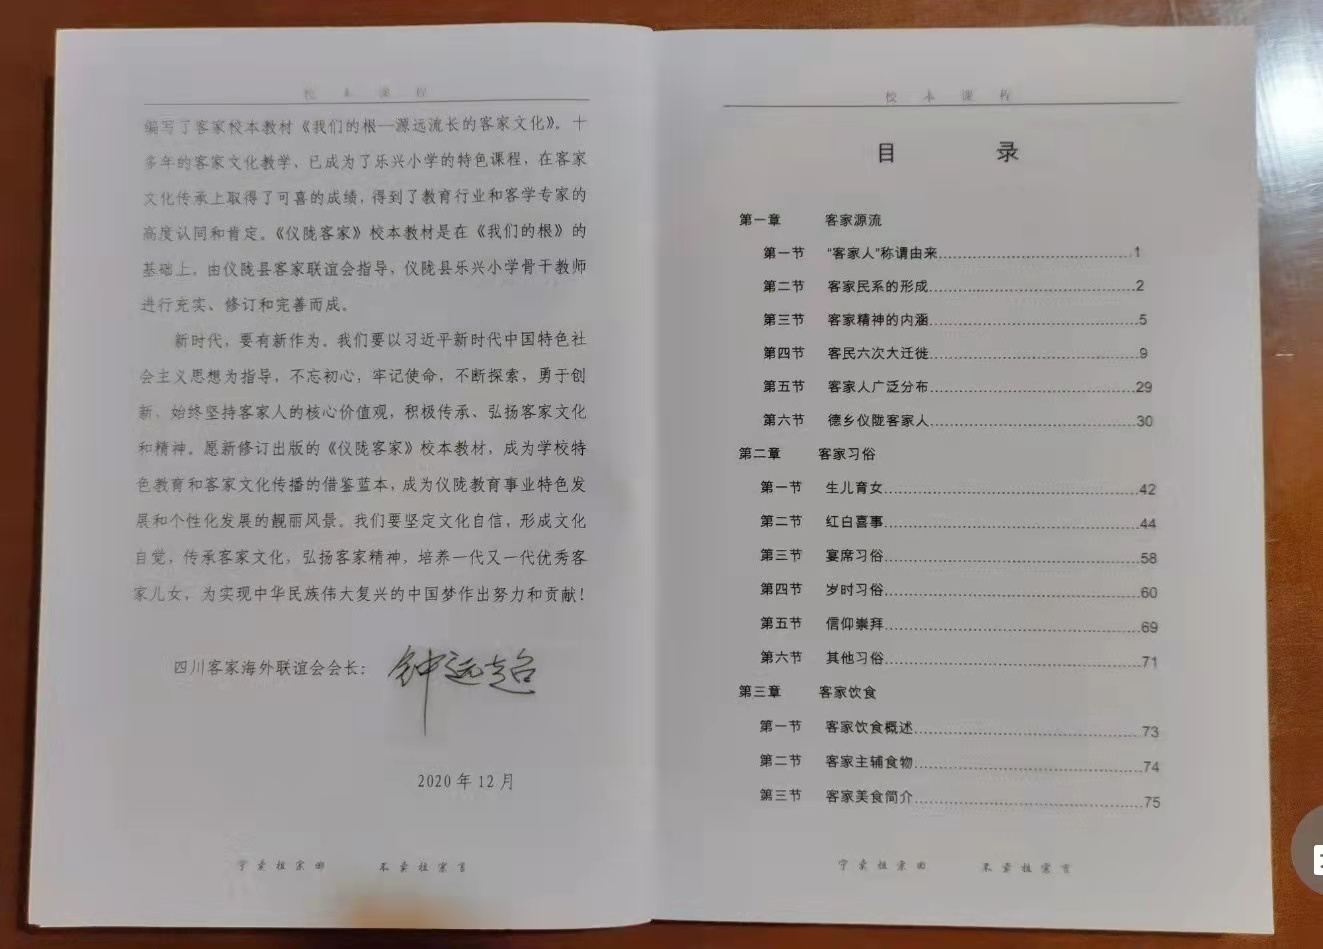 校本课程
编写了客家校本教材《我们的根—源远流长的客家文化》。十
多年的客家文化教学、已成为了乐兴小学的特色课程，在客家
文化传承上取得了可喜的成绩，得到了教育行业和客学专家的
高度认同和肯定。《仪陇客家》校本教材是在《我们的根》的
基础上，由仪陇县客家联谊会指导，仪陇县乐兴小学骨干教师
进行充实、修订和完善而成。
新时代，要有新作为。我们要以习近平新时代中国特色社
会主义思想为指导，不忘初心，牢记使命，不断探索，勇于创
新，始终坚持客家人的核心价值观，积极传承、弘扬客家文化
和精神。愿新修订出版的《仪陇客家》校本教材，成为学校特
色教育和客家文化传播的借鉴蓝本，成为仪陇教育事业特色发
展和个性化发展的靓丽风景。我们要坚定文化自信，形成文化
自觉，传承客家文化，弘扬客家精神，培养一代又一代优秀客
家儿女，为实现中华民族伟大复兴的中国梦作出努力和贡献！
四川客家海外联谊会会长：钟远超
2020年12月
宁卖祖宗田 不卖祖宗言
校本课程
目 录
第一章 客家源流
第一节 “客家人”称谓由来……1
第二节 客家民系的形成……2
第三节 客家精神的内涵……5
第四节 客民六次大迁徙……9
第五节 客家人广泛分布……29
第六节 德乡仪陇客家人……30
第二章 客家习俗
第一节 生儿育女……42
第二节 红白喜事……44
第三节 宴席习俗……58
第四节 岁时习俗……60
第五节 信仰崇拜……69
第六节 其他习俗……71
第三章 客家饮食
第一节 客家饮食概述……73
第二节 客家主辅食物……74
第三节 客家美食简介……75
宁卖祖宗田 不卖祖宗言